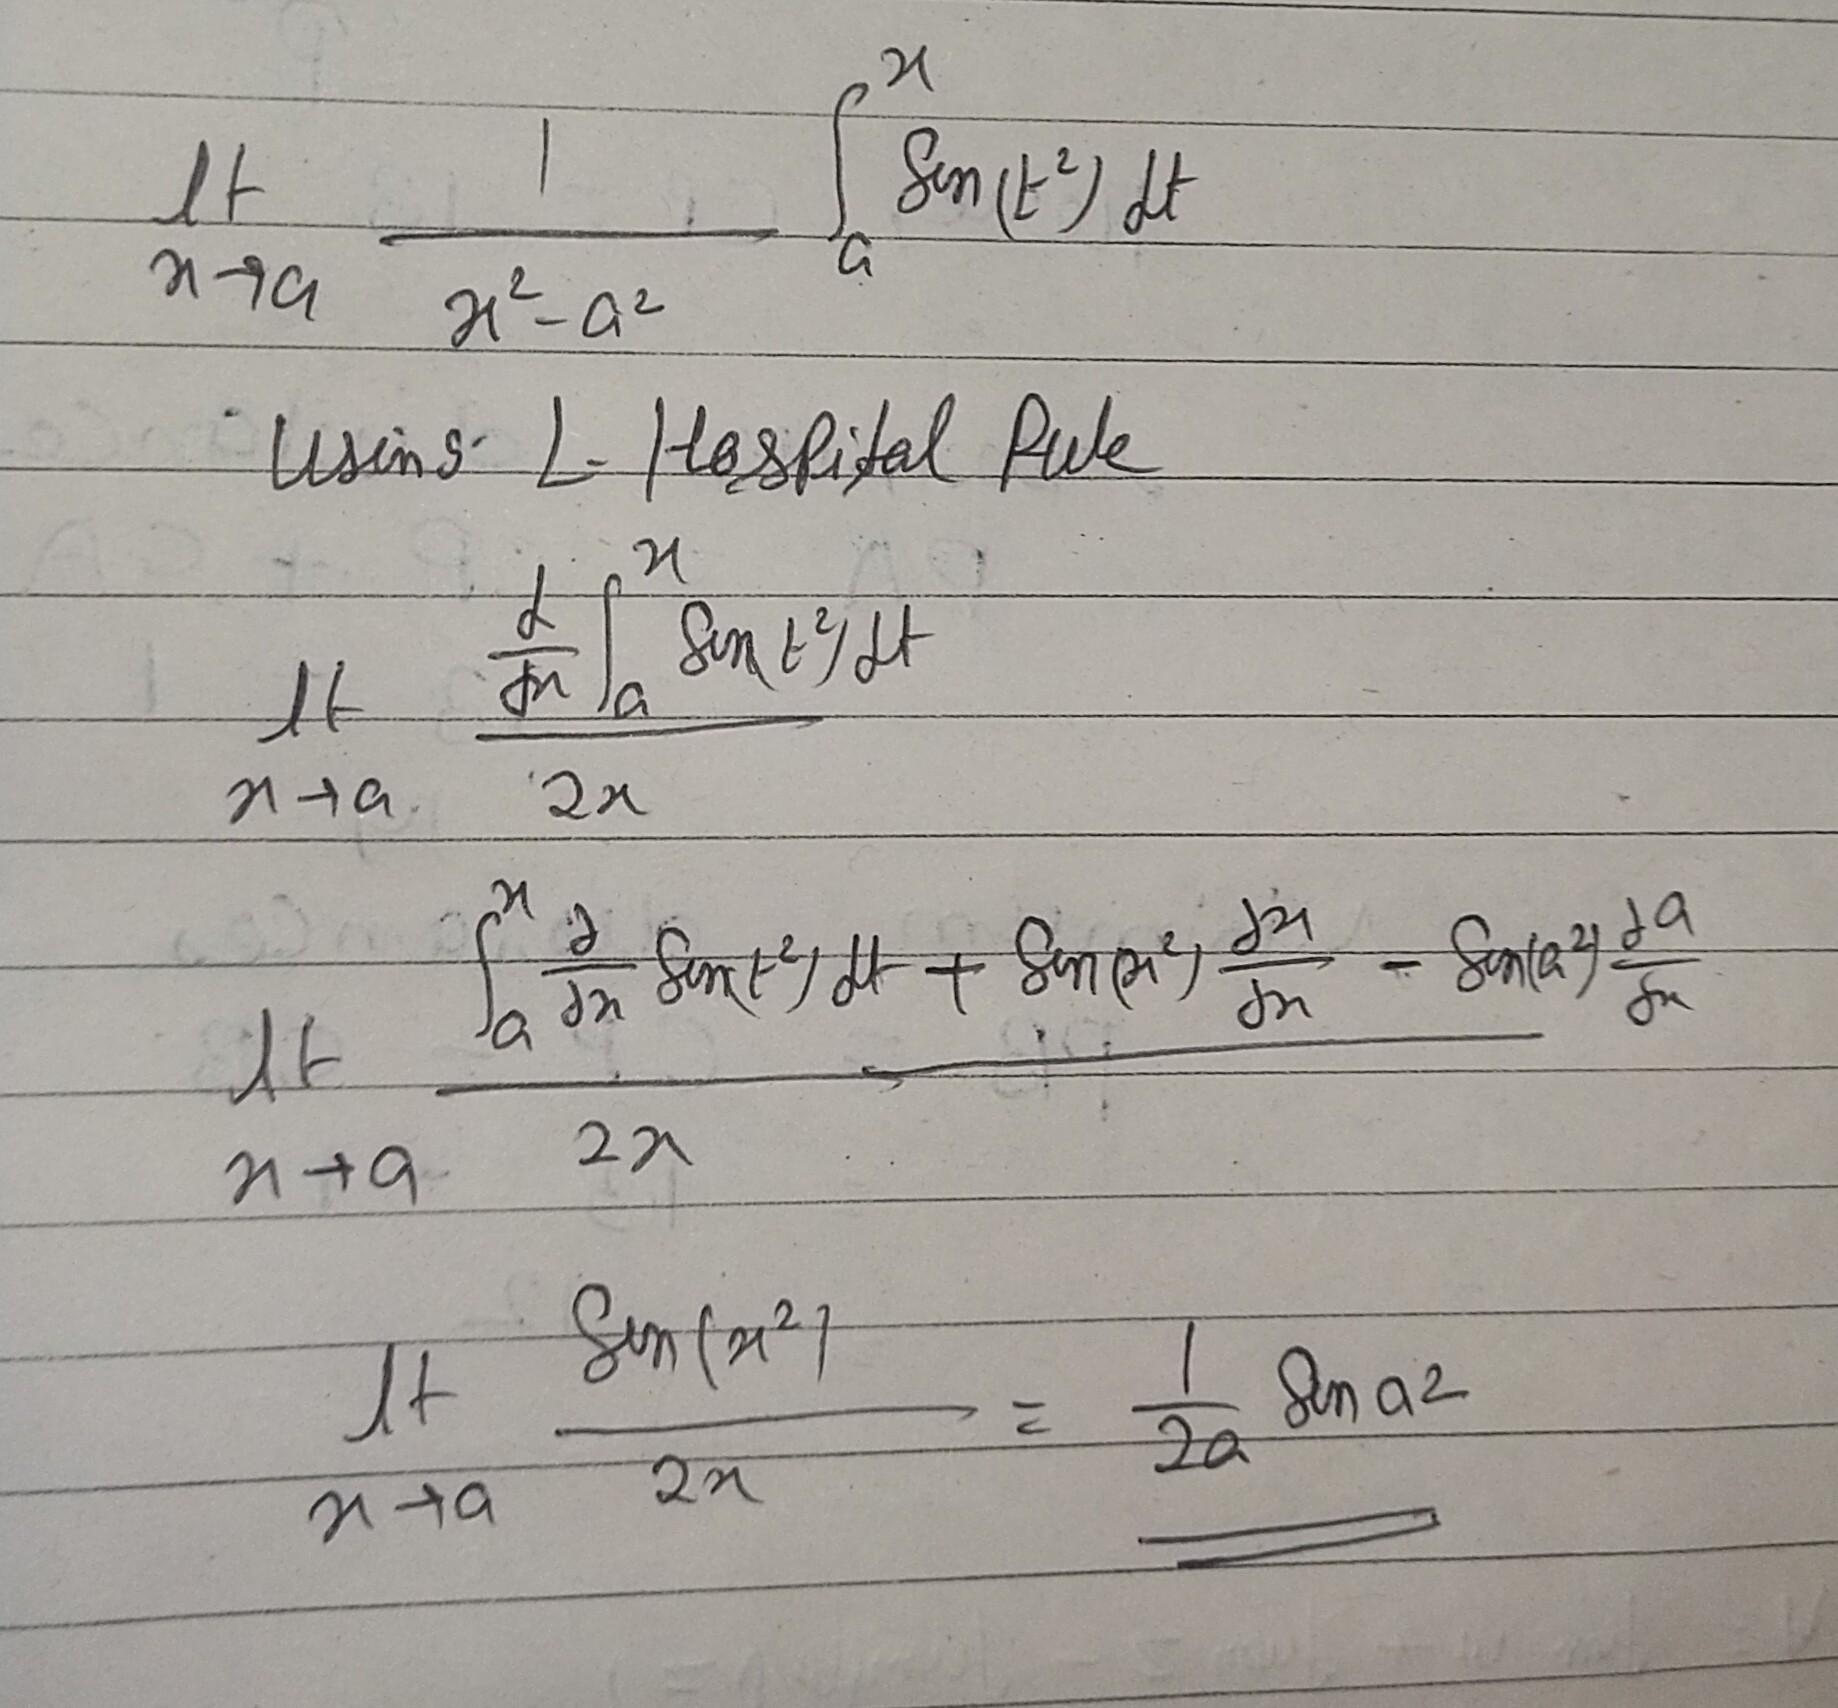 lt x→a 1/(x²-a²) ∫ₐˣ Sin(t²) dt
Using L-Hospital Rule
lt x→a (d/dx ∫ₐˣ Sin(t²) dt)/(2x)
lt x→a (∫ₐˣ ∂/∂x Sin(t²) dt + Sin(x²) dx/dx - Sin(a²) da/dx)/(2x)
lt x→a Sin(x²)/(2x) = 1/(2a) Sin a²